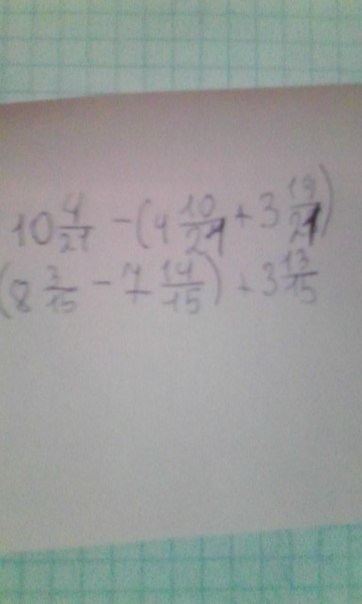 10 4/21 - (4 10/21 + 3 19/21)
(8 3/15 - 7 14/15) + 3 13/15